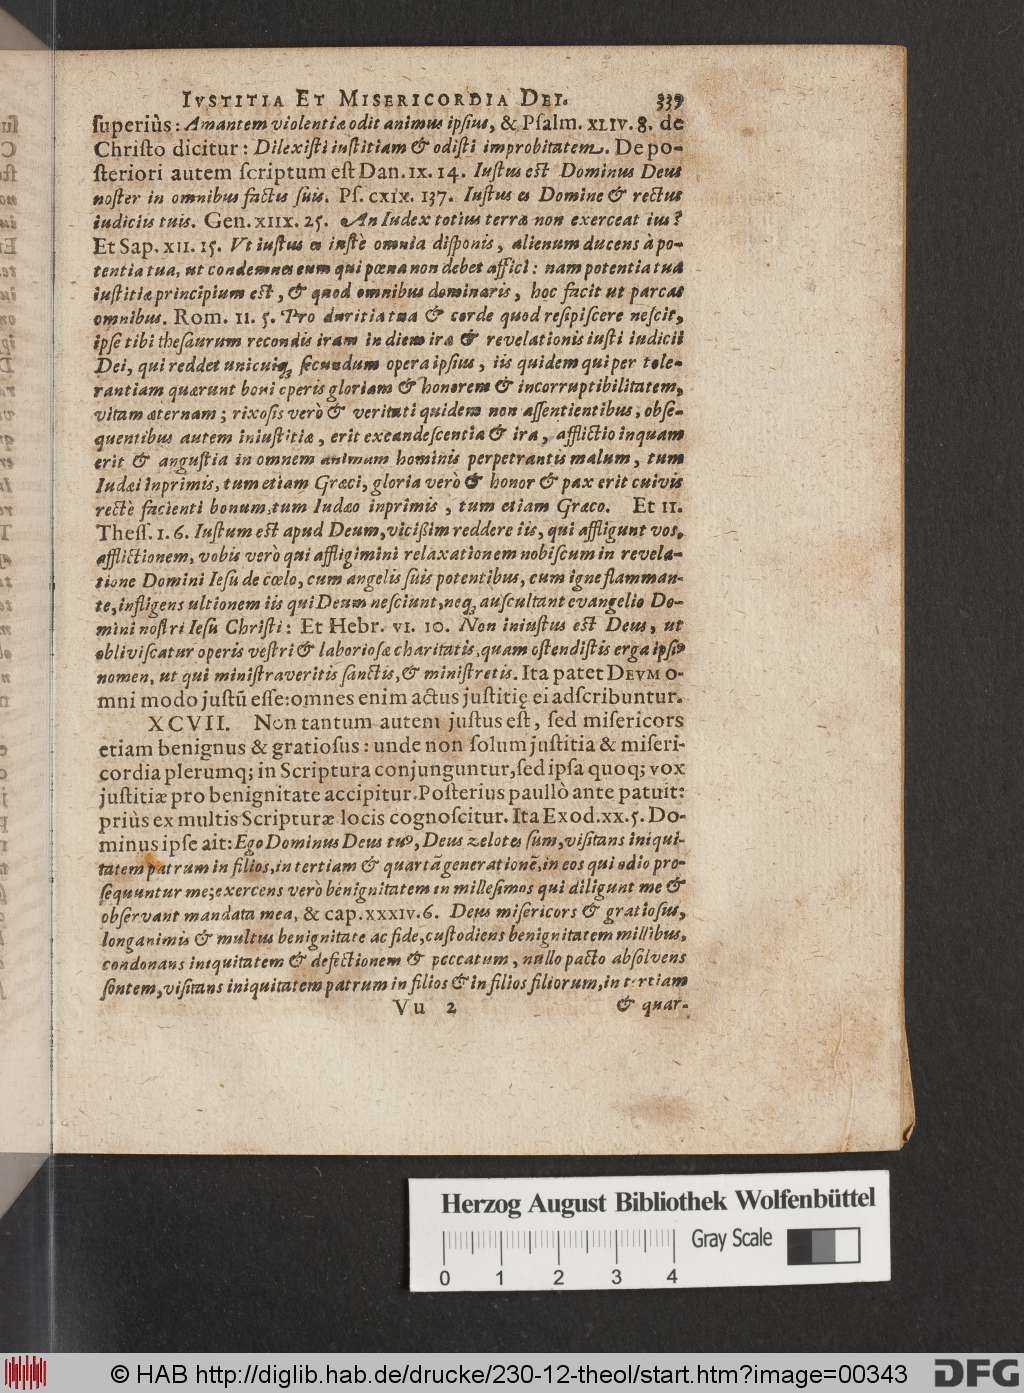 IVSTITIA ET MISERICORDIA DEI. 339
ſuperiùs: Amantem violentiæ odit animus ipſius, & Pſalm. XLIV. 8. de
Chriſto dicitur: Dilexiſti iuſtitiam & odiſti improbitatem. De po-
ſteriori autem ſcriptum eſt Dan. IX. 14. Iuſtus eſt Dominus Deus
noſter in omnibus factis ſuis. Pſ. CXIX. 137. Iuſtus es Domine & rectus
iudiciis tuis. Gen. XIIX. 25. An Iudex totius terræ non exerceat ius?
Et Sap. XII. 15. Vt iuſtus es iuſtè omnia diſponis, alienum ducens à po-
tentia tua, ut condemnes eum qui pœna non debet affici: nam potentia tua
iuſtitiæ principium eſt, & quod omnibus dominaris, hoc facit ut parcas
omnibus. Rom. II. 5. Pro duritia tua & corde quod reſipiſcere neſcit,
ipſe tibi theſaurum recondis iram in diem iræ & revelationis iuſti iudicii
Dei, qui reddet unicuiq; ſecundum opera ipſius, iis quidem qui per tole-
rantiam quærunt boni operis gloriam & honorem & incorruptibilitatem,
vitam æternam; rixoſis verò & veritati quidem non aſſentientibus, obſe-
quentibus autem iniuſtitiæ, erit excandeſcentia & ira, afflictio inquam
erit & anguſtia in omnem animam hominis perpetrantis malum, tum
Iudæi inprimis, tum etiam Græci, gloria verò & honor & pax erit cuivis
rectè facienti bonum, tum Iudæo inprimis, tum etiam Græco. Et II.
Theſſ. I. 6. Iuſtum eſt apud Deum, viciſſim reddere iis, qui affligunt vos,
afflictionem, vobis verò qui affligimini relaxationem nobiſcum in revela-
tione Domini Ieſu de cœlo, cum angelis ſuis potentibus, cum igne flamman-
te, infligens ultionem iis qui Deum neſciunt, neq; auſcultant evangelio Do-
mini noſtri Ieſu Chriſti: Et Hebr. VI. 10. Non iniuſtus eſt Deus, ut
obliviſcatur operis veſtri & laborioſæ charitatis, quam oſtendiſtis erga ipſiꝰ
nomen, ut qui miniſtraveritis ſanctis, & miniſtretis. Ita patet DEVM o-
mni modo juſtũ eſſe: omnes enim actus juſtitię ei adſcribuntur.
XCVII. Non tantum autem juſtus eſt, ſed miſericors
etiam benignus & gratioſus: unde non ſolum juſtitia & miſeri-
cordia plerumq; in Scriptura conjunguntur, ſed ipſa quoq; vox
juſtitiæ pro benignitate accipitur. Poſterius paullò ante patuit:
priùs ex multis Scripturæ locis cognoſcitur. Ita Exod. XX. 5. Do-
minus ipſe ait: Ego Dominus Deus tuꝰ, Deus zelotes ſum, viſitans iniqui-
tatem patrum in filios, in tertiam & quartã generationẽ, in eos qui odio pro-
ſequuntur me; exercens verò benignitatem in milleſimos qui diligunt me &
obſervant mandata mea, & cap. XXXIV. 6. Deus miſericors & gratioſus,
longanimis & multus benignitate ac fide, cuſtodiens benignitatem millibus,
condonans iniquitatem & defectionem & peccatum, nullo pacto abſolvens
ſontem, viſitans iniquitatem patrum in filios & in filios filiorum, in tertiam
Vu 2 & quar-
Herzog August Bibliothek Wolfenbüttel
Gray Scale
0 1 2 3 4
© HAB http://diglib.hab.de/drucke/230-12-theol/start.htm?image=00343
DFG